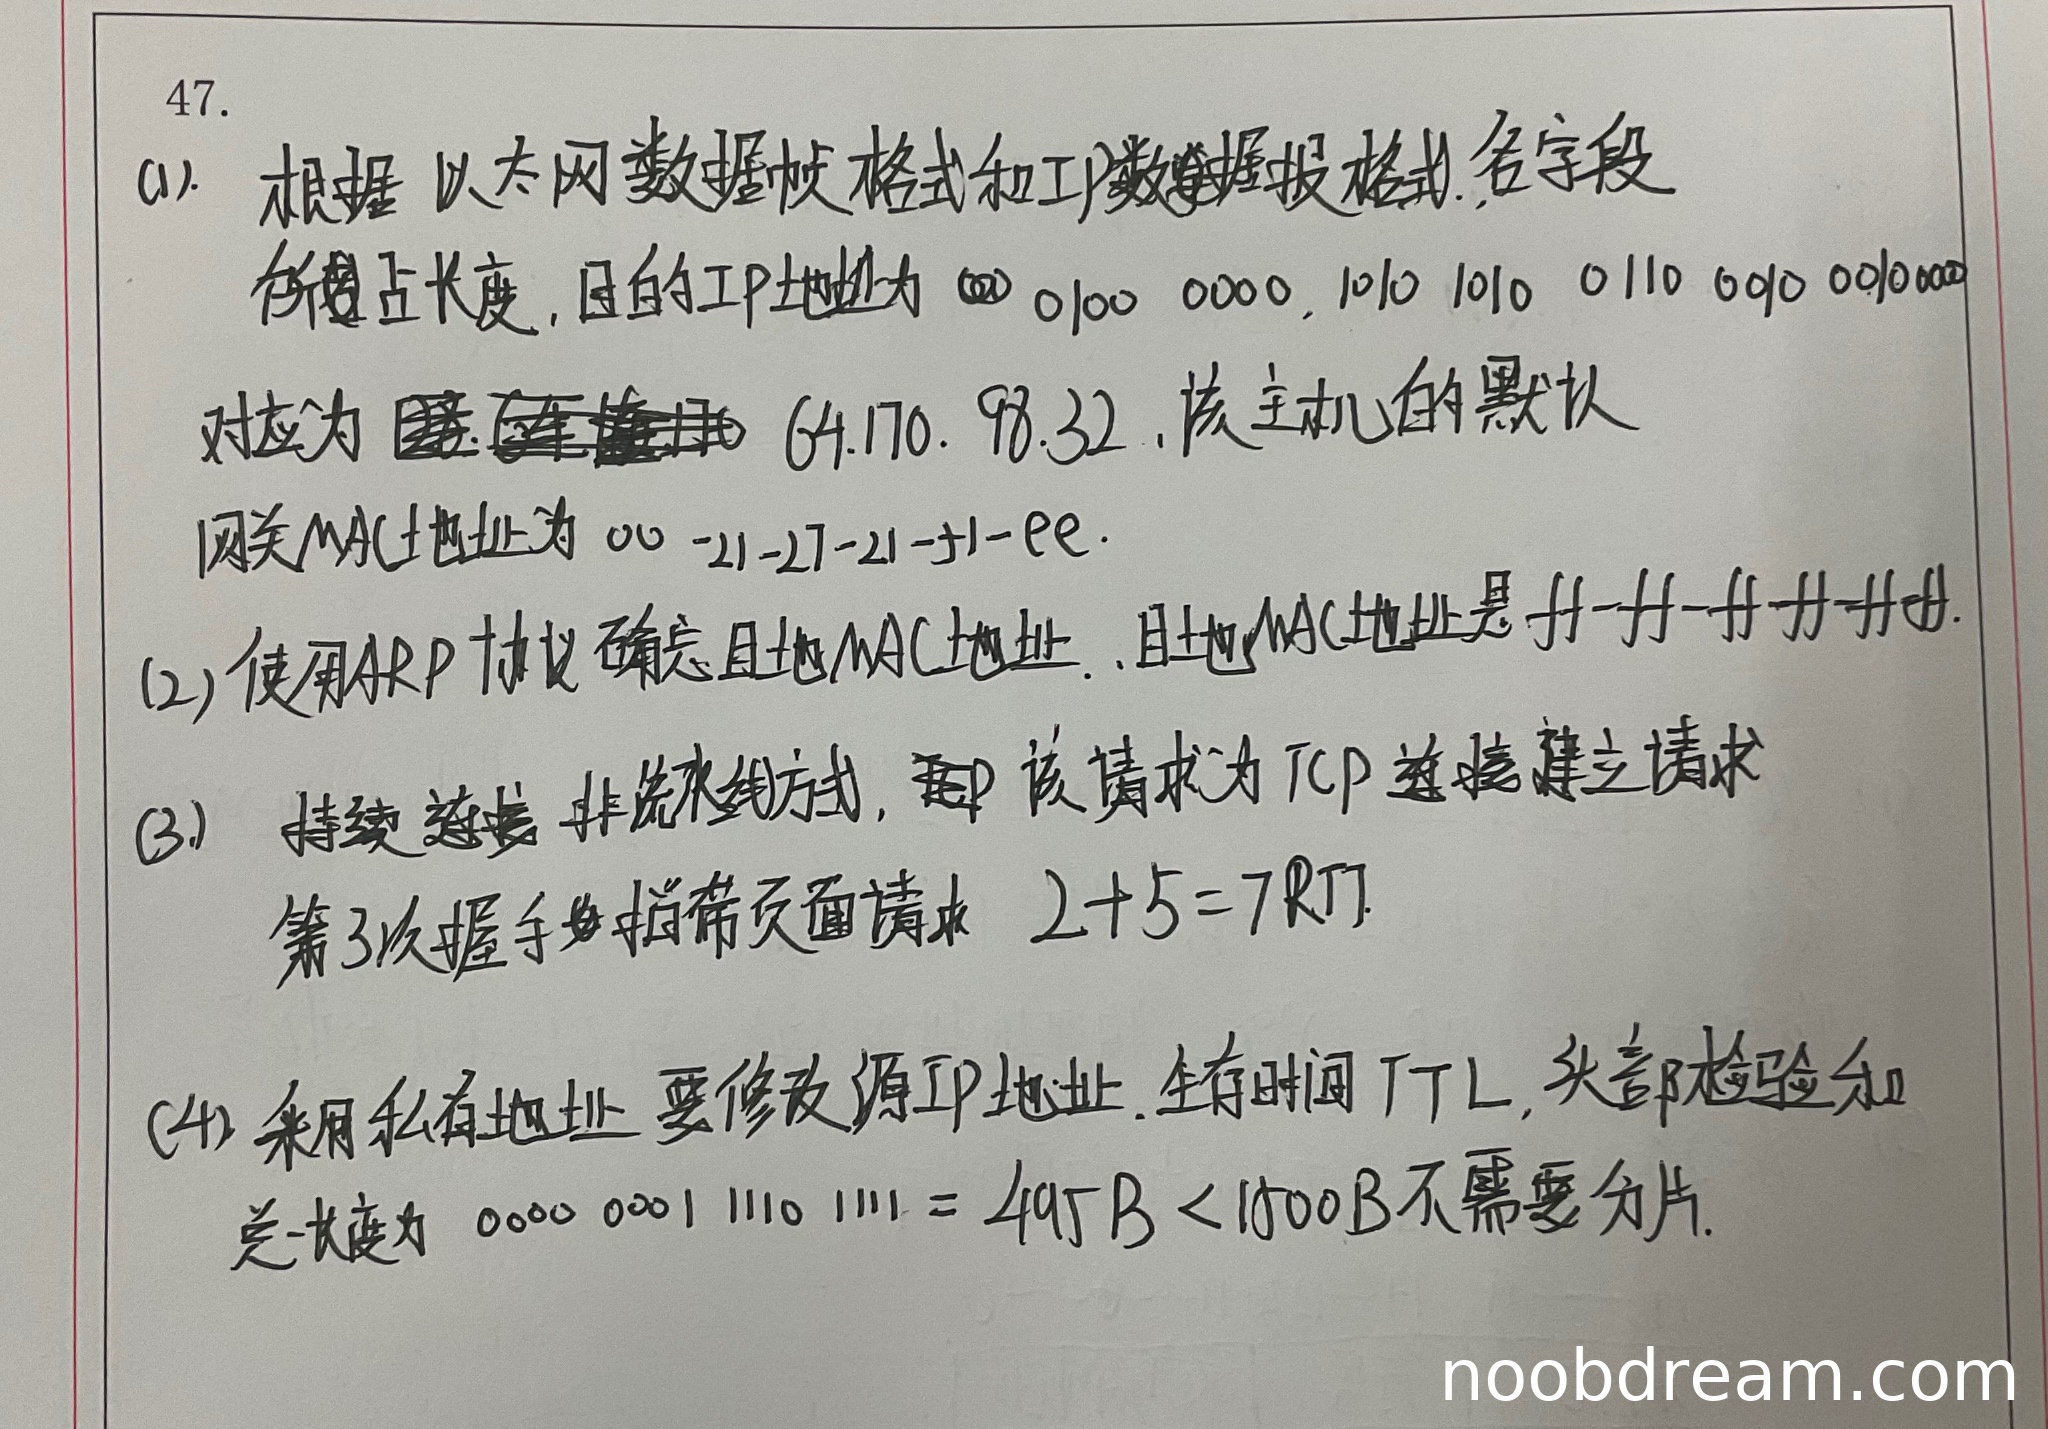 47.
(1). 根据 以太网数据帧格式和IP数据报格式.,各字段
所占长度,目的IP地址为 0100 0000, 1010 1010 0110 0010 0010 0000
对应为 64.170.98.32,该主机的默认
网关MAC地址为 00-21-27-21-51-ee.
(2) 使用ARP协议确定目地MAC地址.,目地MAC地址是 ff-ff-ff-ff-ff-ff.
(3.) 持续连接 非流水线方式, 该请求为TCP连接建立请求
第3次握手捎带页面请求 2+5=7RTT.
(4) 采用私有地址 要修改源IP地址.生存时间TTL,头部检验和
总长度为 0000 0001 1110 1111 = 495B < 1500B不需要分片.
noobdream.com